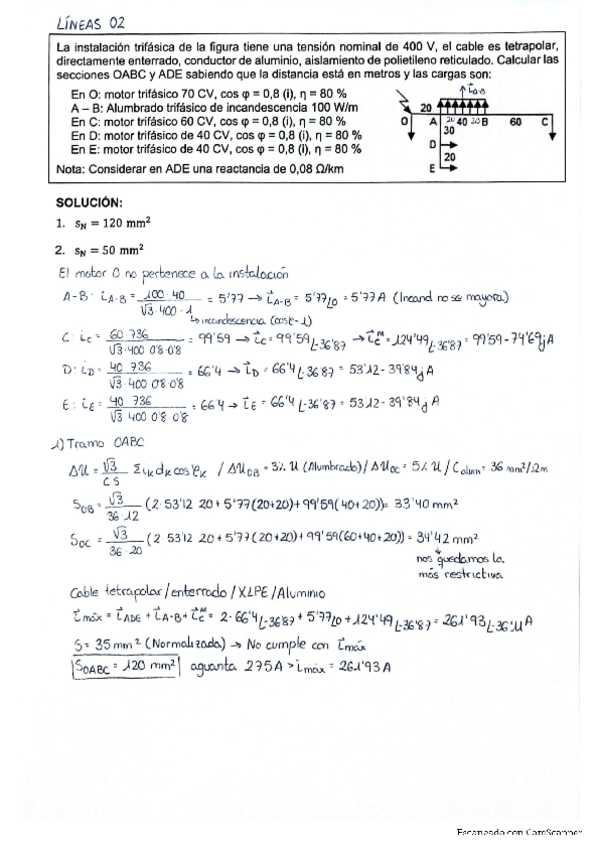 LÍNEAS 02
La instalación trifásica de la figura tiene una tensión nominal de 400 V, el cable es tetrapolar,
directamente enterrado, conductor de aluminio, aislamiento de polietileno reticulado. Calcular las
secciones OABC y ADE sabiendo que la distancia está en metros y las cargas son:
En O: motor trifásico 70 CV, cos φ = 0,8 (i), η = 80 %
A – B: Alumbrado trifásico de incandescencia 100 W/m
En C: motor trifásico 60 CV, cos φ = 0,8 (i), η = 80 %
En D: motor trifásico de 40 CV, cos φ = 0,8 (i), η = 80 %
En E: motor trifásico de 40 CV, cos φ = 0,8 (i), η = 80 %
Nota: Considerar en ADE una reactancia de 0,08 Ω/km
iA-B
20
O A 20 40 20 B 60 C
30
D
20
E
SOLUCIÓN:
1. sN = 120 mm²
2. sN = 50 mm²
El motor O no pertenece a la instalación
A-B: iA-B = 100·40 / √3·400·1 = 5'77 → iA-B = 5'77∠0 = 5'77 A (Incand no se mayora)
↳ incandescencia (cosφ=1)
C: iC = 60·736 / √3·400·0'8·0'8 = 99'59 → iC = 99'59∠-36'87 → iCM = 124'49∠-36'87 = 99'59-74'69j A
D: iD = 40·736 / √3·400·0'8·0'8 = 66'4 → iD = 66'4∠-36'87 = 53'12-39'84j A
E: iE = 40·736 / √3·400·0'8·0'8 = 66'4 → iE = 66'4∠-36'87 = 53'12-39'84j A
1) Tramo OABC
ΔU = √3 / C·S Σ ik dk cosφk / ΔUOB = 3% U (Alumbrado) / ΔUOC = 5% U / Calum = 36 mm²/Ωm
SOB = √3 / 36·12 (2·53'12·20 + 5'77(20+20) + 99'59(40+20)) = 33'40 mm²
SOC = √3 / 36·20 (2·53'12·20 + 5'77(20+20) + 99'59(60+40+20)) = 34'42 mm²
nos quedamos la
más restrictiva
Cable tetrapolar / enterrado / XLPE / Aluminio
imáx = iADE + iA-B + iCM = 2·66'4∠-36'87 + 5'77∠0 + 124'49∠-36'87 = 261'93∠-36'11 A
S = 35 mm² (Normalizada) → No cumple con imáx
SOABC = 120 mm² aguanta 275A > imáx = 261'93 A
Escaneado con CamScanner